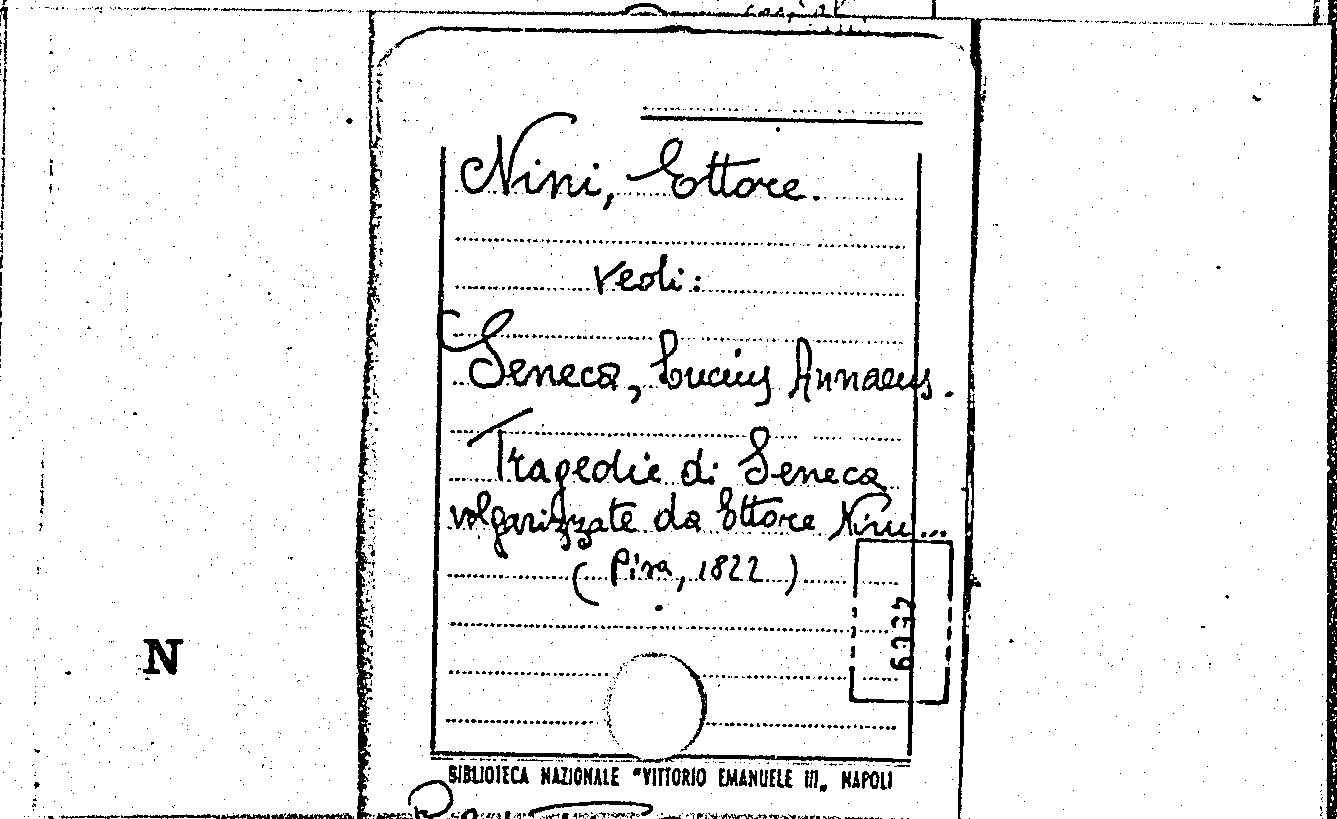 Nini, Ettore.
vedi:
Seneca, Lucius Annaeus.
Tragedie di Seneca
volgarizzate da Ettore Nini...
(Pisa, 1822)
N
BIBLIOTECA NAZIONALE "VITTORIO EMANUELE III„ NAPOLI